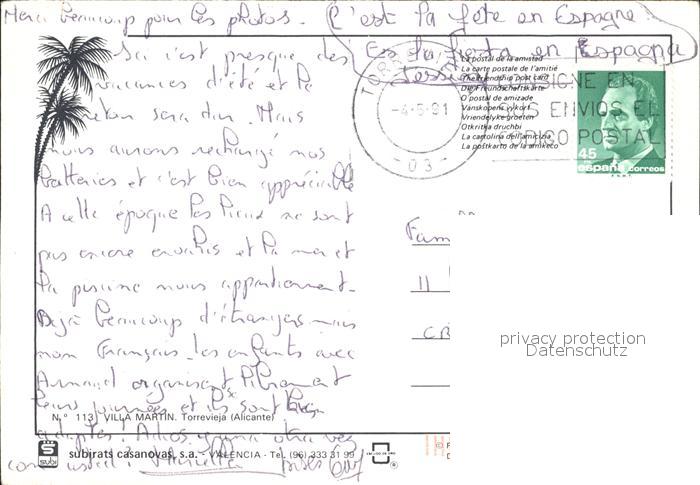 Merci beaucoup pour les photos.
C'est la fête en Espagne
Es la fiesta en Espagna
Jessica
Ici c'est presque des
vacances d'été et le
retour sera dur. Mais
nous aurons rechargé nos
batteries et c'est bien appréciable
A cette époque les lieux ne sont
pas encore envahis et la mer et
la piscine nous appartiennent.
Déjà beaucoup d'étrangers mais
non Français. Les enfants avec
Arnaud organisent librement
leurs journées et ils sont bien
adaptés! Adios y una otra vez
con usted!
bises
La postal de la amistad
La carte postale de l'amitié
The friendship post card
Die Freundschaftskarte
O postal de amizade
Vanskopens vykort
Vriendelyke groeten
Otkritkja druchbi
La cartolina dell'amicizia
La poŝtkarto de la amikeco
TORREVIEJA
-4-5-91
-03-
CONSIGNE EN
SUS ENVIOS EL
DISTRITO POSTAL
45
españa correos
Fam
11
CR
privacy protection
Datenschutz
N.º 113 VILLA MARTIN. Torrevieja (Alicante)
subi
subirats casanovas, s.a. - VALENCIA - Tel. (96) 333 31 99